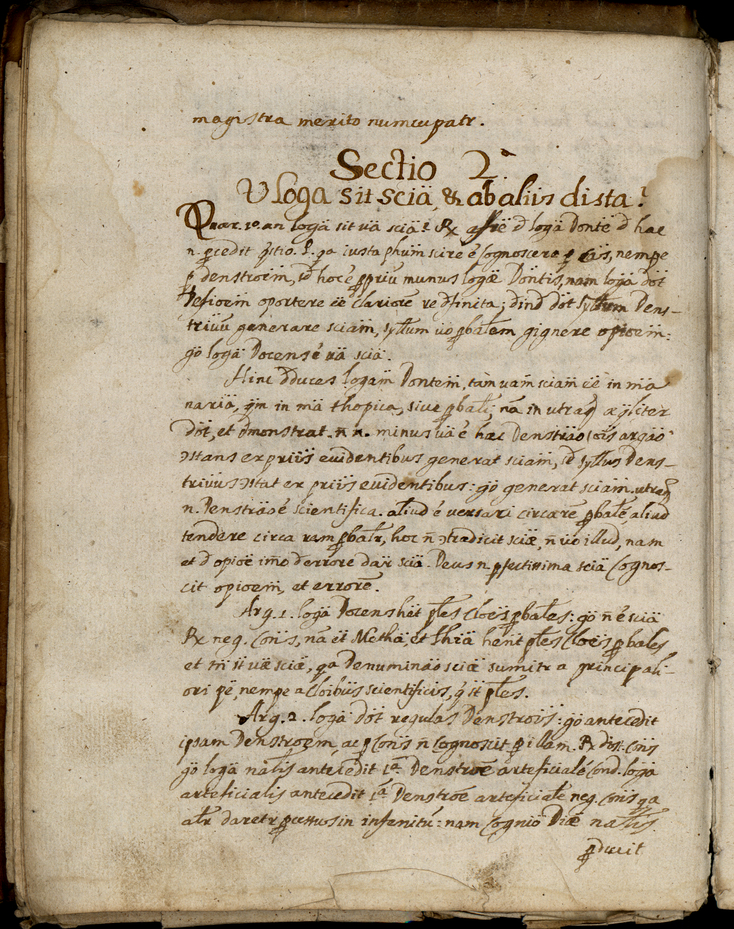 magistra merito numcupatr.
Sectio 2ª
V loga sit scia, & ab aliis dista?
Quar. 1º. an loga sit va scia? Rx affte d loga Donte d hac
n. pcedit qstio. P. qa iuxta phum scire é Cognoscere p cãs, nempe
p denstroem, sd hoc é ppriu munus logæ Dontis, nam loga dot
Defioem oportere ee clariore re dfinita; dind dot syllum Dens-
trivu generare sciam, syllum vo pbalem gignere opioem:
go loga Docens é va scia.
Hinc dduces logam Dontem, tam vam sciam ee in ma
naria, qm in ma thopica, sive pbali, na in utraq æqliter
dot, et dmonstrat. n n. minus va é hæc Denstrao, ois argao
ɔstans ex priis evidentibus generat sciam, sd syllus Dens-
trivus ɔstat ex priis evidentibus: go generat sciam. utraq
n. Denstrao é scientifica. aliud é versari circa re pbale, aliud
tendere circa ram pbalr, hoc n ɔtradicit sciæ, n vo illud, nam
et d opioe imo d errore dar scia. Deus n. pfectissima scia Cognos-
cit opioem, et errore.
Arg. 1. loga Docens het ples Cloes pbales: go n é scia
Rx neg. Conis, na et Metha, et Phia hent ples Cloes pbales
et tn st væ sciæ, qa Denuminao sciæ sumitr a principali-
ori pe, nempe a Cloibus scientificis, q st ples.
Arg. 2. loga dot regulas Denstrois: go antecedit
ipsam Denstroem, ac p Conis n Cognoscit p illam. Rx dis: Conis
go loga nalis antecedit 1ª. Denstroe arteficiale Cond. loga
arteficialis antecedit 1ª Denstroe arteficiale neg. Conis qa
alr daretr pcessus in infenitu: nam Cognio Diæ nalis
pducit